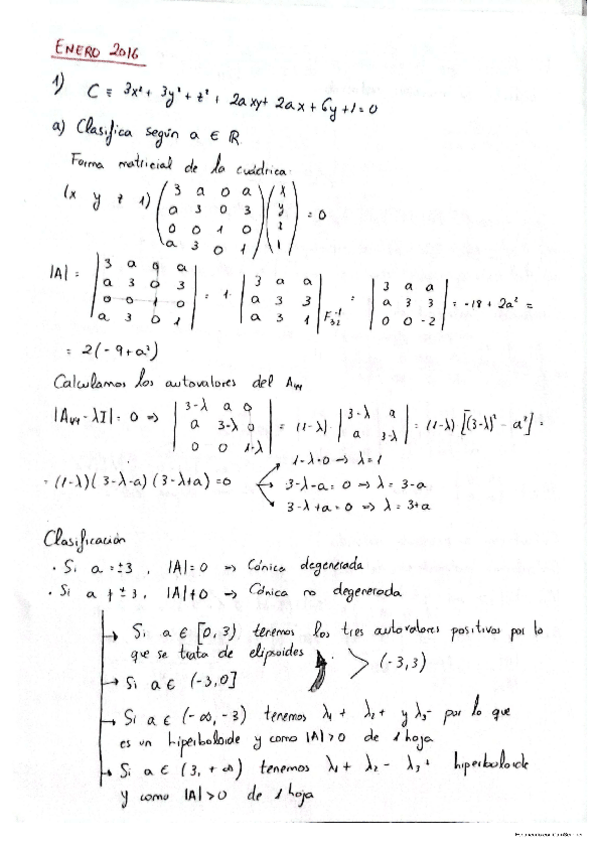 ENERO 2016
1) C ≡ 3x² + 3y² + z² + 2axy + 2ax + 6y + 1 = 0
a) Clasifica según a ∈ R
Forma matricial de la cuádrica:
(x y z 1) (3 a 0 a / a 3 0 3 / 0 0 1 0 / a 3 0 1) (x / y / z / 1) = 0
|A| = |3 a 0 a / a 3 0 3 / 0 0 1 0 / a 3 0 1| = 1· |3 a a / a 3 3 / a 3 1| F₃₂⁻¹ = |3 a a / a 3 3 / 0 0 -2| = -18 + 2a² =
= 2(-9+a²)
Calculamos los autovalores del A₄₄
|A₄₄-λI| = 0 => |3-λ a 0 / a 3-λ 0 / 0 0 1-λ| = (1-λ)· |3-λ a / a 3-λ| = (1-λ) [(3-λ)² - a²] =
= (1-λ)(3-λ-a)(3-λ+a) = 0
1-λ=0 => λ=1
3-λ-a=0 => λ=3-a
3-λ+a=0 => λ=3+a
Clasificación
· Si a = ±3, |A|=0 => Cónica degenerada
· Si a ≠ ±3, |A|≠0 => Cónica no degenerada
→ Si a ∈ [0,3) tenemos los tres autovalores positivos por lo
que se trata de elipsoides > (-3,3)
→ Si a ∈ (-3,0]
→ Si a ∈ (-∞,-3) tenemos λ₁+ λ₂+ y λ₃- por lo que
es un hiperboloide y como |A|>0 de 1 hoja
→ Si a ∈ (3,+∞) tenemos λ₁+ λ₂- λ₃+ hiperboloide
y como |A|>0 de 1 hoja